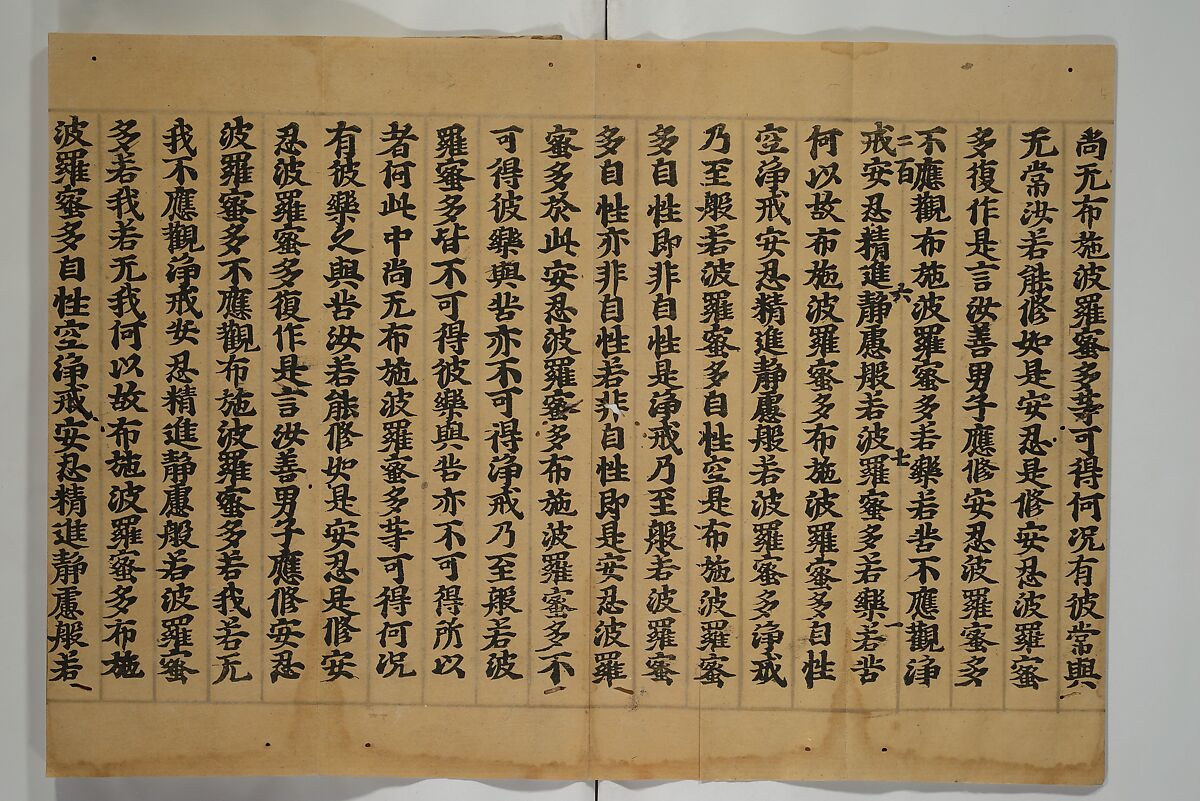 尚无布施波羅蜜多等可得何况有彼常與
无常汝若能修如是安忍是修安忍波羅蜜
多復作是言汝善男子應修安忍波羅蜜多
不應觀布施波羅蜜多若樂若苦不應觀淨
二百 六 七
戒安忍精進静慮般若波羅蜜多若樂若苦
何以故布施波羅蜜多布施波羅蜜多自性
空淨戒安忍精進静慮般若波羅蜜多淨戒
乃至般若波羅蜜多自性空是布施波羅蜜
多自性即非自性是淨戒乃至般若波羅蜜
多自性亦非自性若非自性即是安忍波羅
蜜多於此安忍波羅蜜多布施波羅蜜多不
可得彼樂與苦亦不可得淨戒乃至般若波
羅蜜多皆不可得彼樂與苦亦不可得所以
者何此中尚无布施波羅蜜多等可得何况
有彼樂之與苦汝若能修如是安忍是修安
忍波羅蜜多復作是言汝善男子應修安忍
波羅蜜多不應觀布施波羅蜜多若我若无
我不應觀淨戒安忍精進静慮般若波羅蜜
多若我若无我何以故布施波羅蜜多布施
波羅蜜多自性空淨戒安忍精進静慮般若